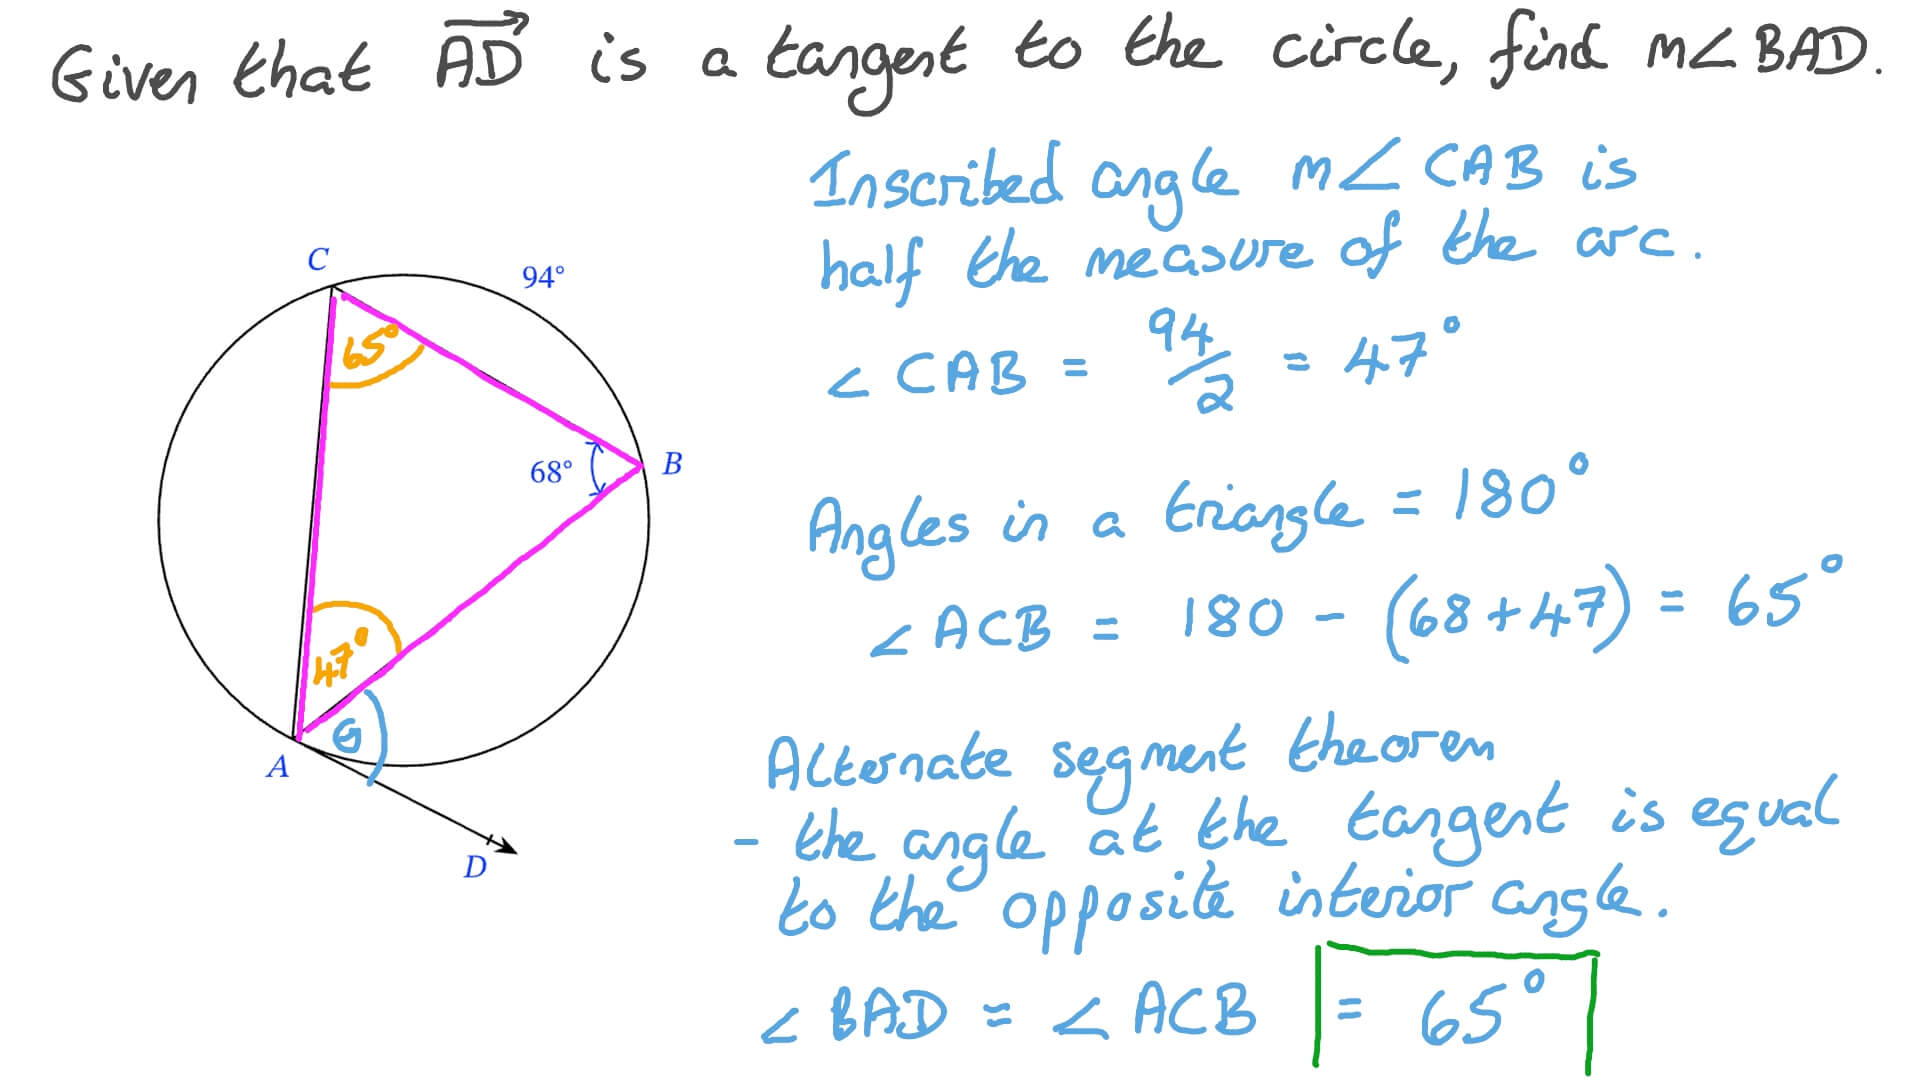 Given that AD is a tangent to the circle, find m∠BAD.
Inscribed angle m∠CAB is
half the measure of the arc.
∠CAB = 94/2 = 47°
Angles in a triangle = 180°
∠ACB = 180 - (68+47) = 65°
Alternate segment theorem
- the angle at the tangent is equal
to the opposite interior angle.
∠BAD = ∠ACB = 65°
C
94°
65°
68°
B
47°
θ
A
D